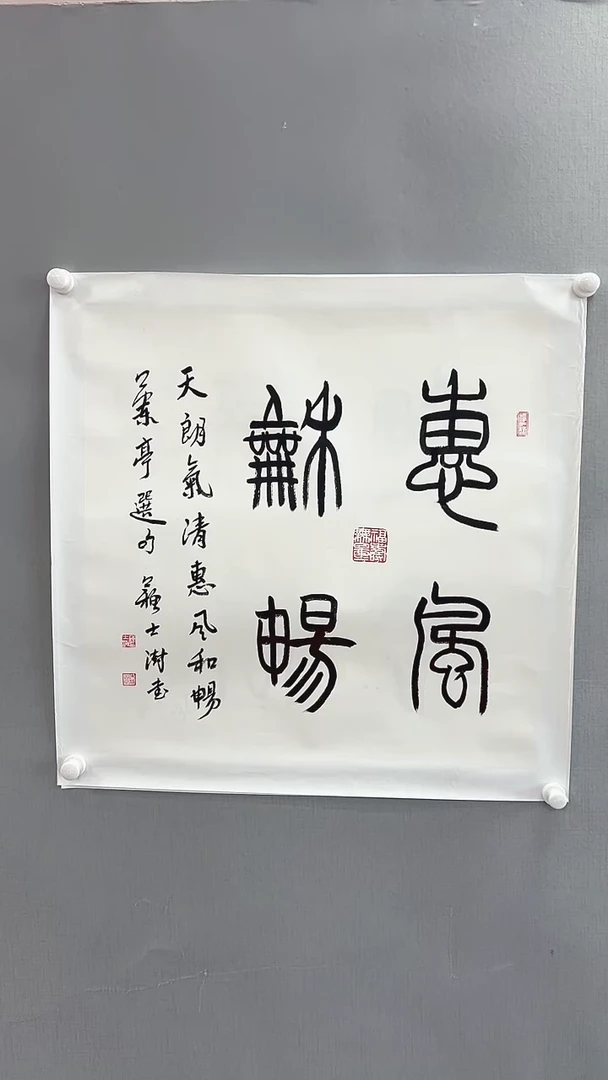 惠風
龢暢
天朗氣清惠風和暢
蘭亭選句 蘇士澍書